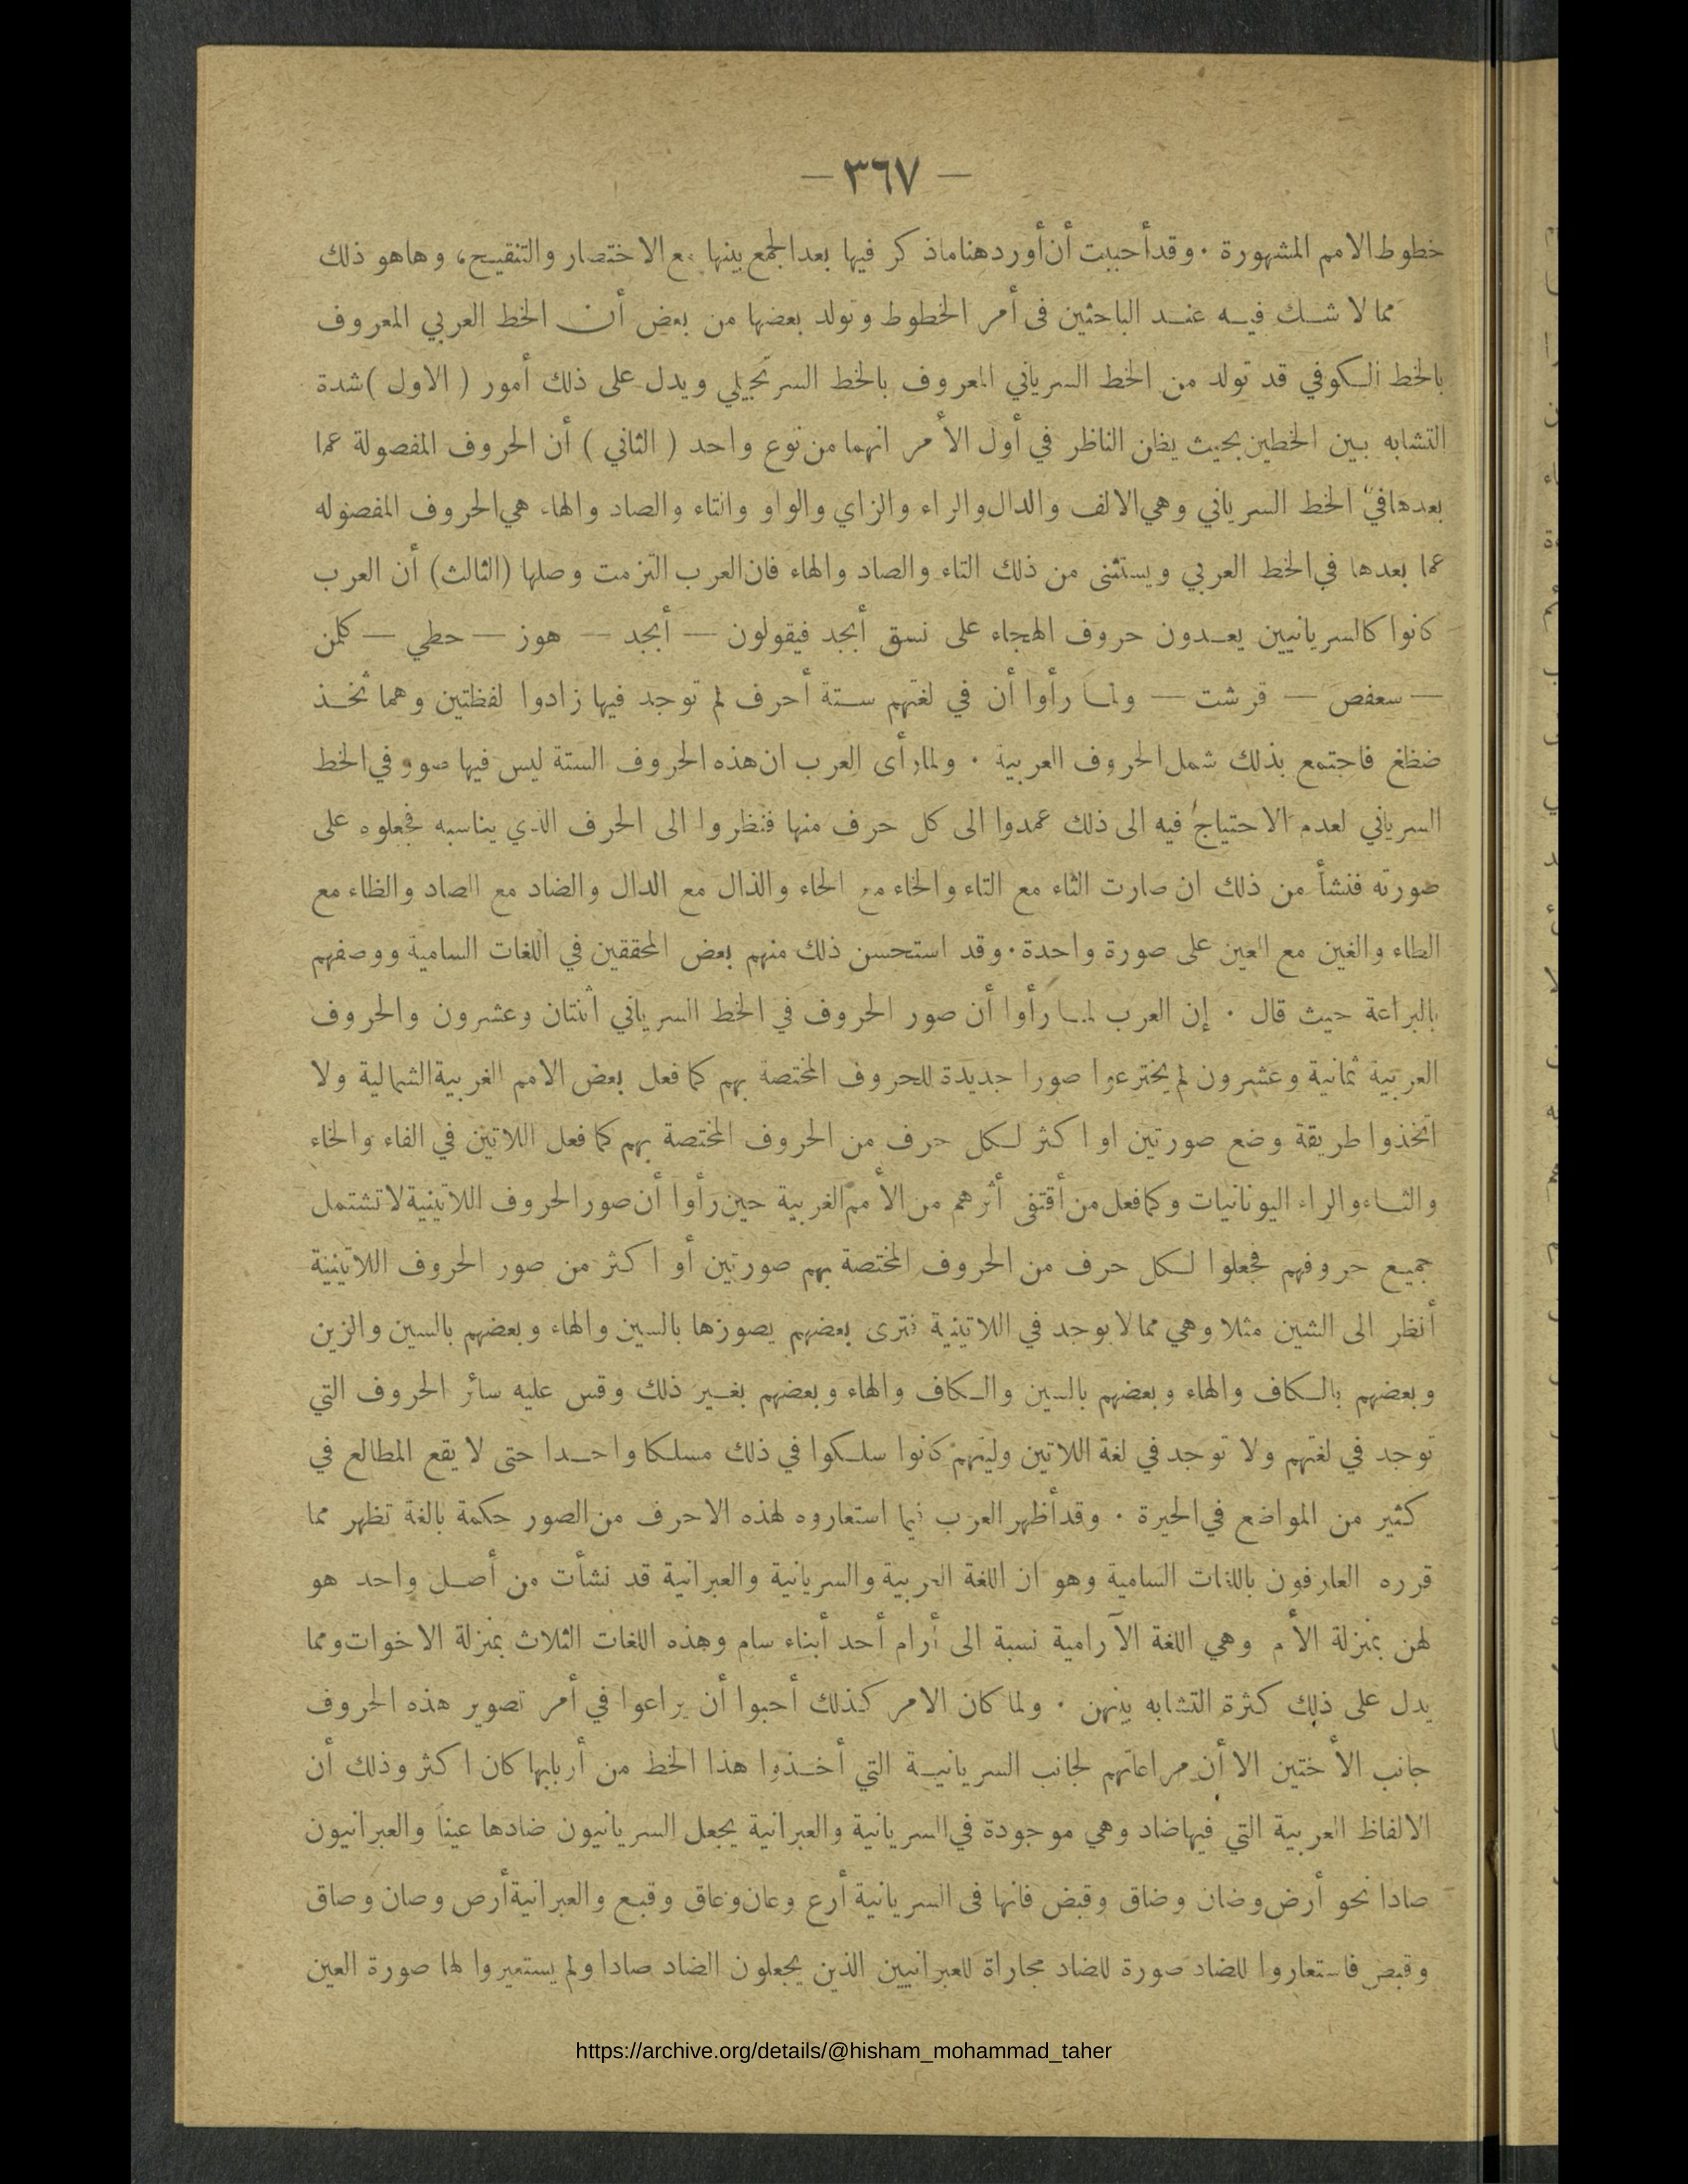 — ٣٦٧ —
خطوط الامم المشهورة ٠ وقد أحببت أن أورد هنا ماذكر فيها بعد الجمع بينها مع الاختصار والتنقيح، وهاهو ذلك
مما لا شك فيه عند الباحثين فى أمر الخطوط وتولد بعضها من بعض أن الخط العربي المعروف
بالخط الكوفي قد تولد من الخط السرياني المعروف بالخط السرنجيلي ويدل على ذلك أمور ( الاول ) شدة
التشابه بين الخطين بحيث يظن الناظر في أول الأمر انهما من نوع واحد ( الثاني ) أن الحروف المفصولة عما
بعدها في الخط السرياني وهي الالف والدال والراء والزاي والواو والتاء والصاد والهاء هي الحروف المفصوله
عما بعدها في الخط العربي ويستثنى من ذلك التاء والصاد والهاء فان العرب التزمت وصلها (الثالث) أن العرب
كانوا كالسريانيين يعدون حروف الهجاء على نسق أبجد فيقولون — أبجد — هوز — حطي — كلمن
— سعفص — قرشت — ولما رأوا أن في لغتهم ستة أحرف لم توجد فيها زادوا لفظتين وهما ثخذ
ضظغ فاجتمع بذلك شمل الحروف العربية ٠ ولما رأى العرب ان هذه الحروف الستة ليس فيها صور في الخط
السرياني لعدم الاحتياج فيه الى ذلك عمدوا الى كل حرف منها فنظروا الى الحرف الذي يناسبه فجعلوه على
صورته فنشأ من ذلك ان صارت الثاء مع التاء والخاء مع الحاء والذال مع الدال والضاد مع الصاد والظاء مع
الطاء والغين مع العين على صورة واحدة ٠ وقد استحسن ذلك منهم بعض المحققين في اللغات السامية ووصفهم
بالبراعة حيث قال ٠ إن العرب لما رأوا أن صور الحروف في الخط السرياني اثنتان وعشرون والحروف
العربية ثمانية وعشرون لم يخترعوا صورا جديدة للحروف المختصة بهم كما فعل بعض الامم الغربية الشمالية ولا
اتخذوا طريقة وضع صورتين او اكثر لكل حرف من الحروف المختصة بهم كما فعل اللاتين في الفاء والخاء
والثاء والراء اليونانيات وكما فعل من أقتفى أثرهم من الأمم الغربية حين رأوا أن صور الحروف اللاتينية لا تشتمل
جميع حروفهم فجعلوا لكل حرف من الحروف المختصة بهم صورتين أو اكثر من صور الحروف اللاتينية
أنظر الى الشين مثلا وهي مما لا يوجد في اللاتينية فترى بعضهم يصورها بالسين والهاء وبعضهم بالسين والزين
وبعضهم بالكاف والهاء وبعضهم بالسين والكاف والهاء وبعضهم بغير ذلك وقس عليه سائر الحروف التي
توجد في لغتهم ولا توجد في لغة اللاتين وليتهم كانوا سلكوا في ذلك مسلكا واحدا حتى لا يقع المطالع في
كثير من المواضع في الحيرة ٠ وقد أظهر العرب فيما استعاروه لهذه الاحرف من الصور حكمة بالغة تظهر مما
قرره العارفون باللغات السامية وهو ان اللغة العربية والسريانية والعبرانية قد نشأت من أصل واحد هو
لهن بمنزلة الأم وهي اللغة الآرامية نسبة الى أرام أحد أبناء سام وهذه اللغات الثلاث بمنزلة الاخوات ومما
يدل على ذلك كثرة التشابه بينهن ٠ ولما كان الامر كذلك أحبوا أن يراعوا في أمر تصوير هذه الحروف
جانب الأختين الا أن مراعاتهم لجانب السريانية التي أخذوا هذا الخط من أربابها كان اكثر وذلك أن
الالفاظ العربية التي فيها ضاد وهي موجودة في السريانية والعبرانية يجعل السريانيون ضادها عيناً والعبرانيون
صادا نحو أرض وضان وضاق وقبض فانها فى السريانية أرع وعان وعاق وقبع والعبرانية أرص وصان وصاق
وقبص فاستعاروا للضاد صورة للضاد مجاراة للعبرانيين الذين يجعلون الضاد صادا ولم يستعيروا لها صورة العين
https://archive.org/details/@hisham_mohammad_taher